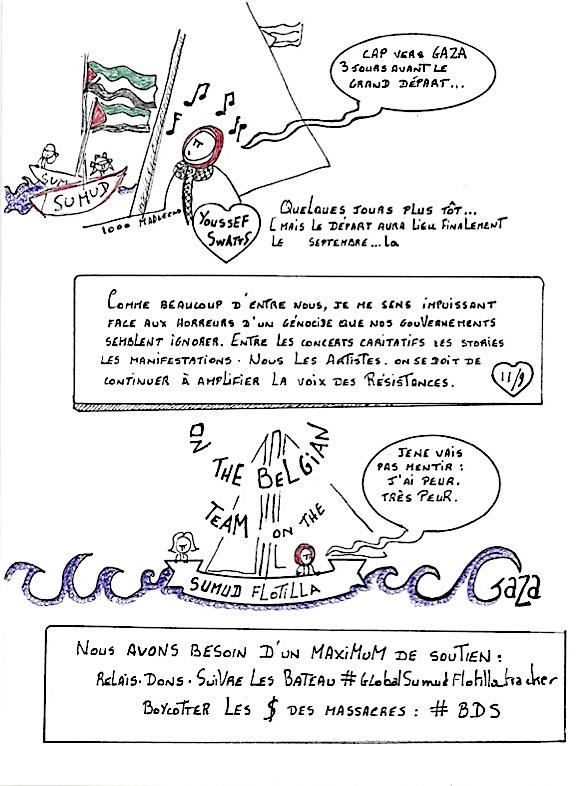 CAP VERS GAZA
3 JOURS AVANT LE
GRAND DÉPART...
SUM
SUMUD
1000 MADLEENS
YOUSSEF
SWATS
QUELQUES JOURS PLUS TÔT...
(MAIS LE DÉPART AURA LIEU FINALEMENT
LE SEPTEMBRE...
COMME BEAUCOUP D'ENTRE NOUS, JE ME SENS IMPUISSANT
FACE AUX HORREURS D'UN GÉNOCIDE QUE NOS GOUVERNEMENTS
SEMBLENT IGNORER. ENTRE LES CONCERTS CARITATIFS LES STORIES
LES MANIFESTATIONS. NOUS LES ARTISTES. ON SE DOIT DE
CONTINUER À AMPLIFIER LA VOIX DES RÉSISTANCES.
11/9
ON THE BELGIAN
TEAM ON THE
JE NE VAIS
PAS MENTIR :
J'AI PEUR.
TRÈS PEUR.
SUMUD FLOTILLA
GAZA
NOUS AVONS BESOIN D'UN MAXIMUM DE SOUTIEN :
RELAIS. DONS. SUIVRE LES BATEAU #GlobalSumudFlotillatracker
BOYCOTTER LES $ DES MASSACRES : # BDS